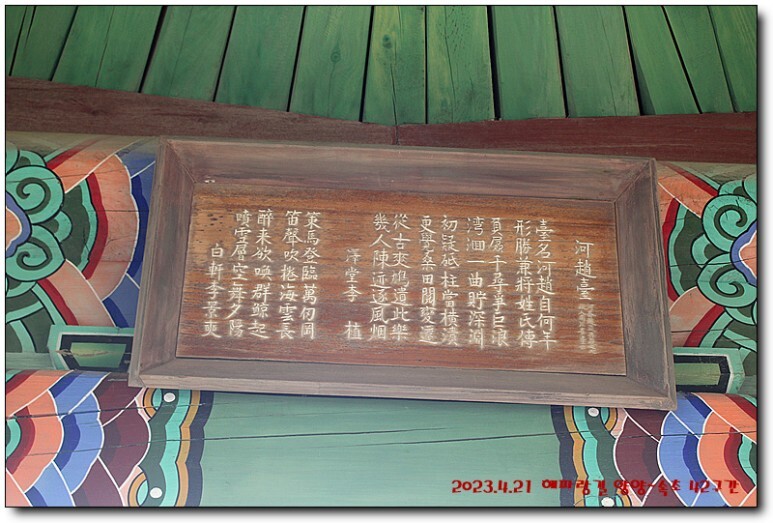 河趙臺
臺名河趙自何年
形勝兼將姓氏傳
千尋爭巨浪
灣洄一曲貯深淵
初疑砥柱當橫潰
更覺桑田閱變遷
從古爽鳩遺此樂
幾人陳迹逐風烟
澤堂李植
策馬登臨萬仞岡
笛聲吹捲海雲長
醉來欲喚群鯨起
噴雪層空舞夕陽
白軒李景奭
2023.4.21 해파랑길 양양~속초 42구간